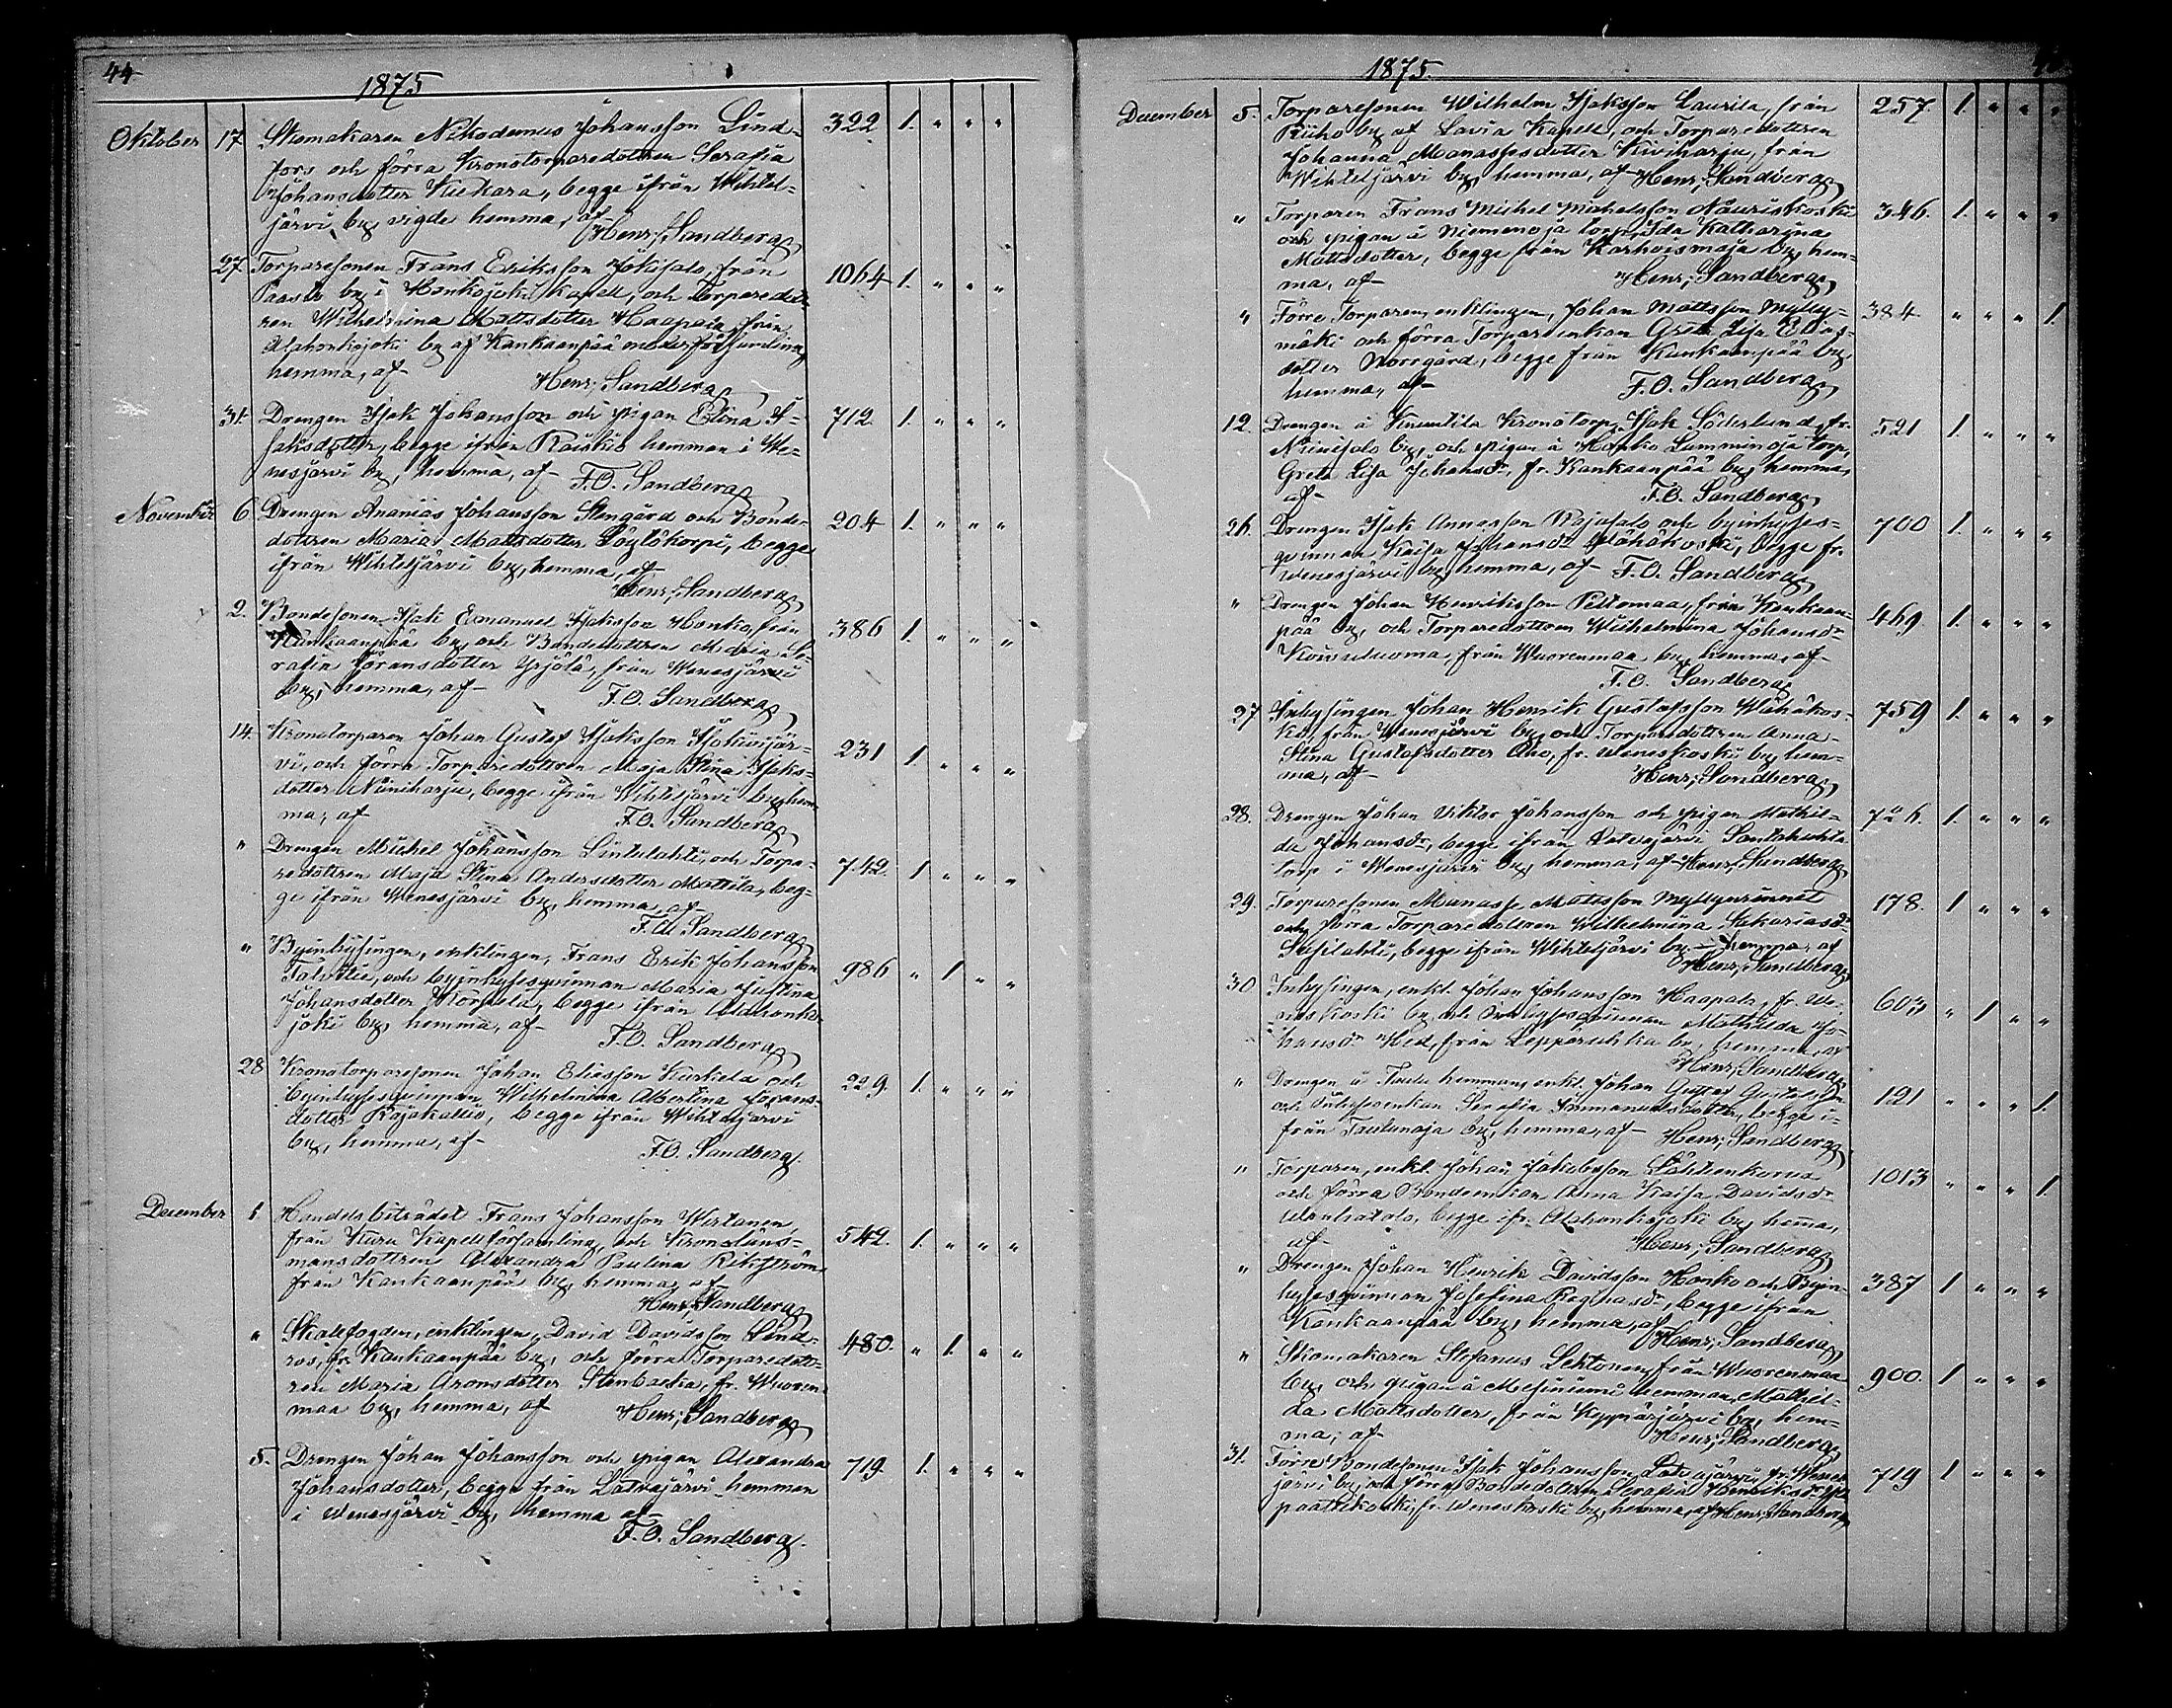 44
1875
Oktober 17. Skomakaren Nikodemus Johansson Lind- 322 1. " " "
fors och förra Kronotorparedottren Serafia
Johansdotter Kuckara, begge ifrån Wihtel-
järvi by, vigde hemma, af
Henr; Sandberg
27. Torparesonen Frans Eriksson Jokisalo, från 1064 1. " " "
by i Honkajoki Kapell, och Torparedott-
ren Wilhelmina Mattsdotter Haapala, från
Alahonkajoki by af Kankaanpää moderförsamling
hemma, af
Henr; Sandberg
31. Drengen Isak Johansson och pigan Elina I- 712. 1. " " "
saksdotter, begge ifrån Raiskio hemman i We-
nesjärvi by, hemma, af F.O. Sandberg
November 6 Drengen Ananias Johansson Stengård och Bonde- 204 1. " " "
dottren Maria Mattsdotter Löytökorpi, begge
ifrån Wihteljärvi by, hemma, af
Henr; Sandberg
2. Bondesonen Isak Emanuel Isaksson Honko, från 386 1. " " "
Kankaanpää by, och Bondedottren Maria Se-
rafia Göransdotter Yrjölä, från Wenesjärvi
by, hemma, af F.O. Sandberg
14. Kronotorparen Johan Gustaf Isaksson 231 1. " " "
vi, och förra Torparedottren Maja Stina Isaks-
dotter Niiniharju, begge ifrån Wihteljärvi by, hem-
ma, af F.O. Sandberg
" Drengen Michel Johansson Lintulahti, och Torpa- 742. 1 " " "
redottren Maja Stina Andersdotter Mattila, beg-
ge ifrån Wenesjärvi by, hemma, af
F.O. Sandberg
" Byinhysingen, enklingen, Frans Erik Johansson 986 " 1 " "
och byinhysesqvinnan Maria Justina
Johansdotter Korpela, begge ifrån Alahonka-
joki by, hemma, af F.O. Sandberg
28 Kronotorparesonen Johan Eliasson Kurkela och 229. 1. " " "
byinhysesqvinnan Wilhelmina Albertina Görans-
dotter Rajakallio, begge ifrån Wihteljärvi
by, hemma, af F.O. Sandberg.
December 1 Handelsbiträdet Frans Johansson Wirtanen, 542. 1. " " "
från Kuru Kapellförsamling, och Kronolans-
mansdottren Alexandra Paulina Rikström
från Kankaanpää by, hemma, af
Henr; Sandberg
" Skallfogden, enklingen, David Davidsson Lind- 480. " 1. " "
ros, fr. Kankaanpää by, och förra Torparedott-
ren Maria Aronsdotter Stenbacka, fr. Wuoren-
maa by, hemma, af Henr; Sandberg
5. Drengen Johan Johansson och pigan Alexandra 719 1. " " "
Johansdotter, begge från Latvajärvi hemman
i Wenesjärvi by, hemma af
F.O. Sandberg.
1875.
December 5. Torparesonen Wilhelm Isaksson Laurila, från 257 1. " " "
Riiho by af Lavia Kapell, och Torparedottren
Johanna Manassesdotter Kiviharju, från
Wihteljärvi by, hemma, af Henr; Sandberg
" Torparen Frans Michel Michelsson Nauriskoski 346. 1. " " "
och pigan å Niemenoja torp, Ida Katharina
Mattsdotter, begge från Karhoismaja by, hem-
ma, af Henr; Sandberg
" Förre Torparen, enklingen, Johan Mattsson Mylly- 384 " " " 1.
mäki och förra Torpareenkan Greta Lisa Elias-
dotter Norrgård, begge från Kankaanpää by,
hemma, af F.O. Sandberg
12. Drengen å Kronotorp, Isak Söderlund, fr. 521 1. " " "
Niinisalo by, och pigan å Honko Lamminoja torp,
Greta Lisa Johansdr, fr. Kankaanpää by, hemma,
af F.O. Sandberg
26. Drengen Isak Annasson Rajasalo och byinhyses- 700 1. " " "
qvinnan Kaisa Johansdr Wähäkoski, begge fr.
Wenesjärvi by, hemma, af F.O. Sandberg
" Drengen Johan Henriksson Peltomaa, från Kankaan- 469. 1. " " "
pää by, och Torparedottren Wilhelmina Johansdr
Koivuluoma, från Wuorenmaa by, hemma, af
F.O. Sandberg
27. Inhysingen Johan Henrik Gustafsson Wähäkos- 759 1. " " "
ki, från Wenesjärvi by, och Torparedottren Anna
Stina Gustafsdotter Aho, fr. Weneskoski by, hem-
ma, af Henr; Sandberg
28. Drengen Johan Viktor Johansson och pigan Mathil- 726. 1. " " "
da Johansdr, begge ifrån Latvajärvi Santahuhta
torp i Wenesjärvi by, hemma, af Henr; Sandberg
29. Torparesonen Manasse Mattsson Myllyniemi 178. 1 " " "
och förra Torparedottren Wilhelmina Sakariasdr
Susilahti, begge ifrån Wihteljärvi by, hemma, af
Henr; Sandberg
30 Inhysingen, enkl. Johan Johansson Haapala, fr. We- 603 " 1 " "
neskoski by, och Inhysesqvinnan Mathilda Jo-
hansdr Hed, från Leppäruhka by, hemma, af
Henr; Sandberg
" Drengen å Taulu hemman, enkl. Johan Gustaf Gustafsson 121 " " " 1.
och Inhysesenkan Serafia Emanuelsdotter, begge i-
från Taulunoja by, hemma, af Henr; Sandberg
" Torparen, enkl. Johan Jakobsson Lähteenkorva 1013 " " " 1.
och förra Bondeenkan Anna Kaisa Davidsdr
begge ifr. Alahonkajoki by, hemma,
af Henr; Sandberg
" Drengen Johan Henrik Davidsson Honko och Byin- 387 1 " " "
hysesqvinnan Josefina Regnasdr, begge ifrån
Kankaanpää by, hemma, af
Henr; Sandberg
" Skomakaren Stefanus Lehtonen, från Wuorenmaa 900. 1 " " "
by, och pigan å hemman, Mathil-
da Mattsdotter, från Kyynärjärvi by, hem-
ma, af Henr; Sandberg
31. Förre Bondesonen Isak Johansson Latvajärvi, fr. Wenes- 719 1 " " "
järvi by, och förra Bondedottren Serafia Henriksdr Yli
paattikoski, fr. Weneskoski by, hemma, af Henr; Sandberg